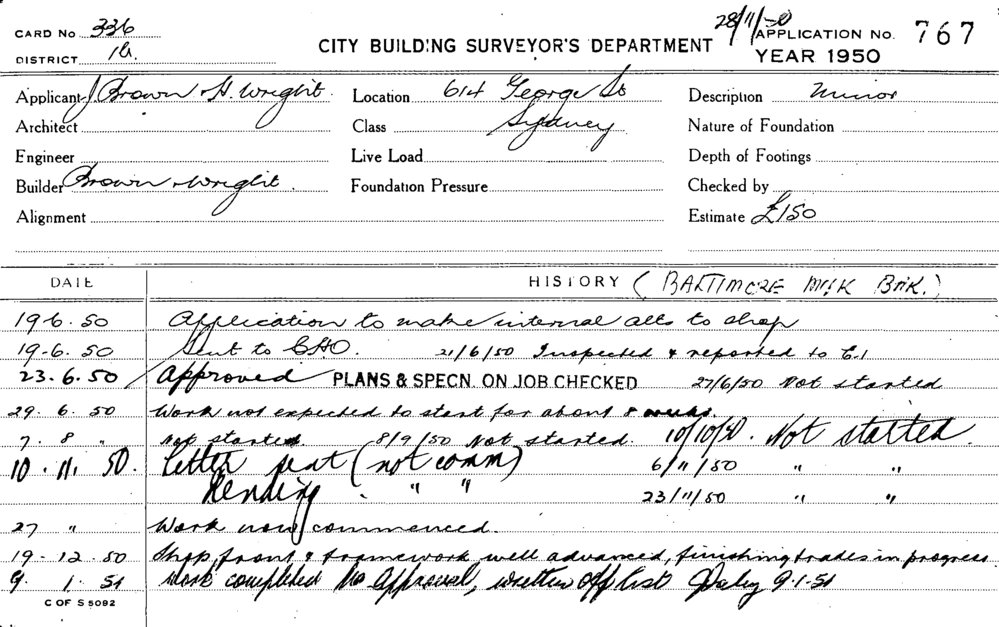 CARD No 336
DISTRICT 1b.
CITY BUILDING SURVEYOR'S DEPARTMENT
28/11/50
APPLICATION NO. 767
YEAR 1950
Applicant J. Brown H. Wright. Location 614 George St Description Minor
Architect Class Sydney Nature of Foundation
Engineer Live Load Depth of Footings
Builder Brown Wright. Foundation Pressure Checked by
Alignment Estimate £150
DATE HISTORY (BALTIMORE MILK BAR.)
19.6.50 Application to make internal alts to shop
19.6.50 Sent to CHO. 21/6/50 Inspected & reported to C.I
23.6.50 Approved PLANS & SPECN. ON JOB CHECKED 27/6/50 Not started
29.6.50 Work not expected to start for about 8 weeks.
7.8 " Not started 8/9/50 Not started. 10/10/50. Not started.
10.11.50. Letter sent (not comm) 6/11/50 " "
Pending . " " 23/11/50 " "
27 " Work now commenced.
19.12.50 Shop front & framework well advanced, finishing trades in progress
9.1.51 Work completed No Approval, written off list Daley 9-1-51
C OF S 5092